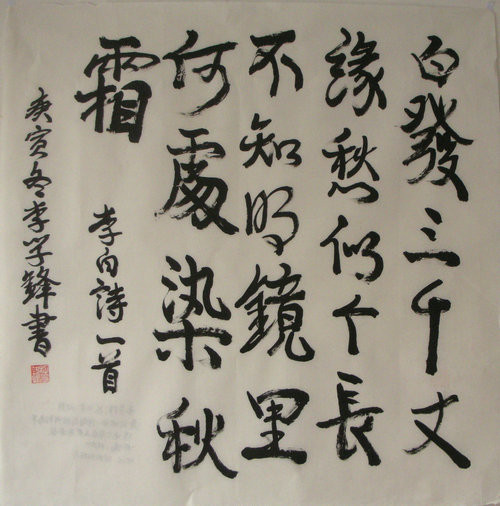 白發三千丈
緣愁似个長
不知明鏡里
何處染秋
霜
李白詩一首
庚寅冬李学鋒書